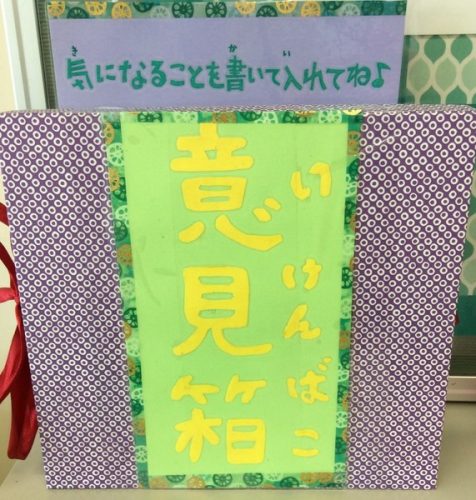 気になることを書いて入れてね♪
き か い
意見箱
いけんばこ